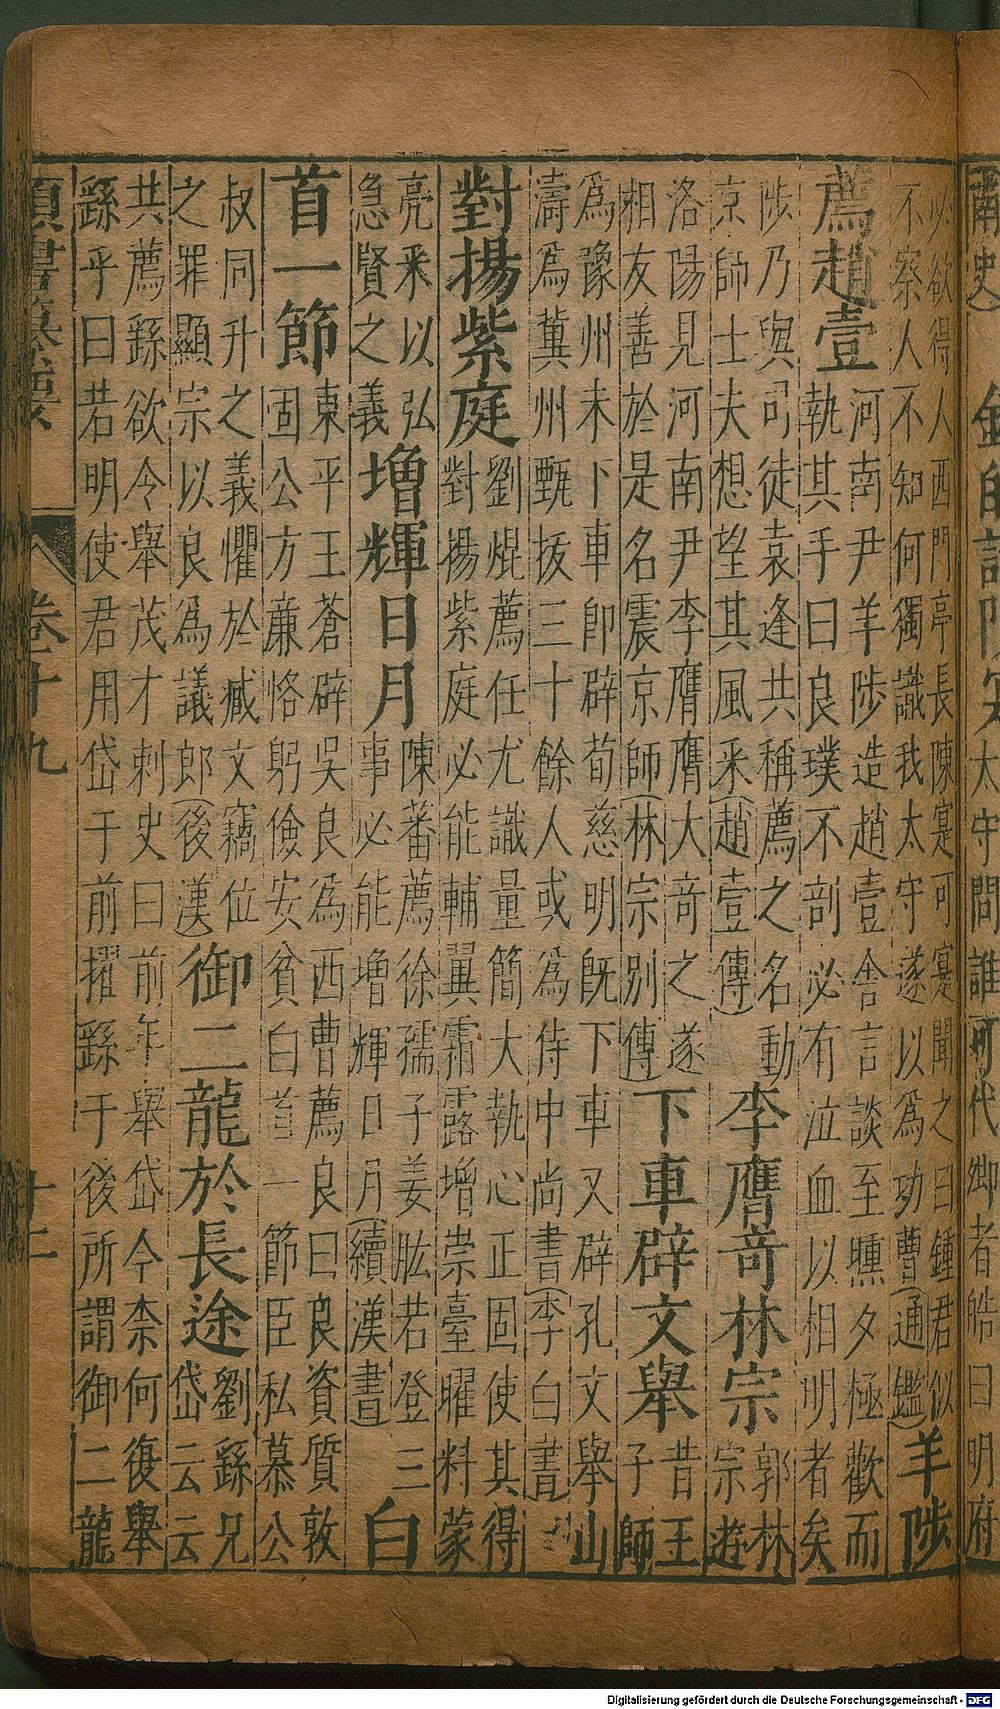 南史）
太守問誰可代卿者皓曰明府
必欲得人西門亭長陳寔可寔聞之曰鍾君似
不察人不知何獨識我太守遂以為功曹（通鑑）
羊陟
薦趙壹
河南尹羊陟造趙壹舍言談至曛夕極歡而
執其手曰良璞不剖必有泣血以相明者矣
陟乃與司徒袁逢共稱薦之名動
京師士夫想望其風釆（趙壹傳）
李膺竒林宗
郭林
宗遊
洛陽見河南尹李膺膺大竒之遂
相友善於是名震京師（林宗別傳）
下車辟文舉
昔王
子師
為豫州未下車即辟荀慈明既下車又辟孔文舉山
濤為冀州甄拔三十餘人或為侍中尚書（李白書）
對揚紫庭
劉焜薦任尤識量簡大執心正固使其得
對揚紫庭必能輔翼霜露增崇臺曜料蒙
亮釆以弘
急賢之義
增輝日月
陳蕃薦徐孺子姜肱若登三
事必能增輝日月（續漢書）
白
首一節
東平王蒼辟吳良為西曹薦良曰良資質敦
固公方廉恪躬儉安貧白首一節臣私慕公
叔同升之義懼於臧文竊位
之罪顯宗以良為議郎（後漢）
御二龍於長途
劉繇兄
岱云云
共薦繇欲令舉茂才刺史曰前年舉岱今柰何復舉
繇乎曰若明使君用岱于前擢繇于後所謂御二龍
類書纂要
卷十九
十二
Digitalisierung gefördert durch die Deutsche Forschungsgemeinschaft - DFG